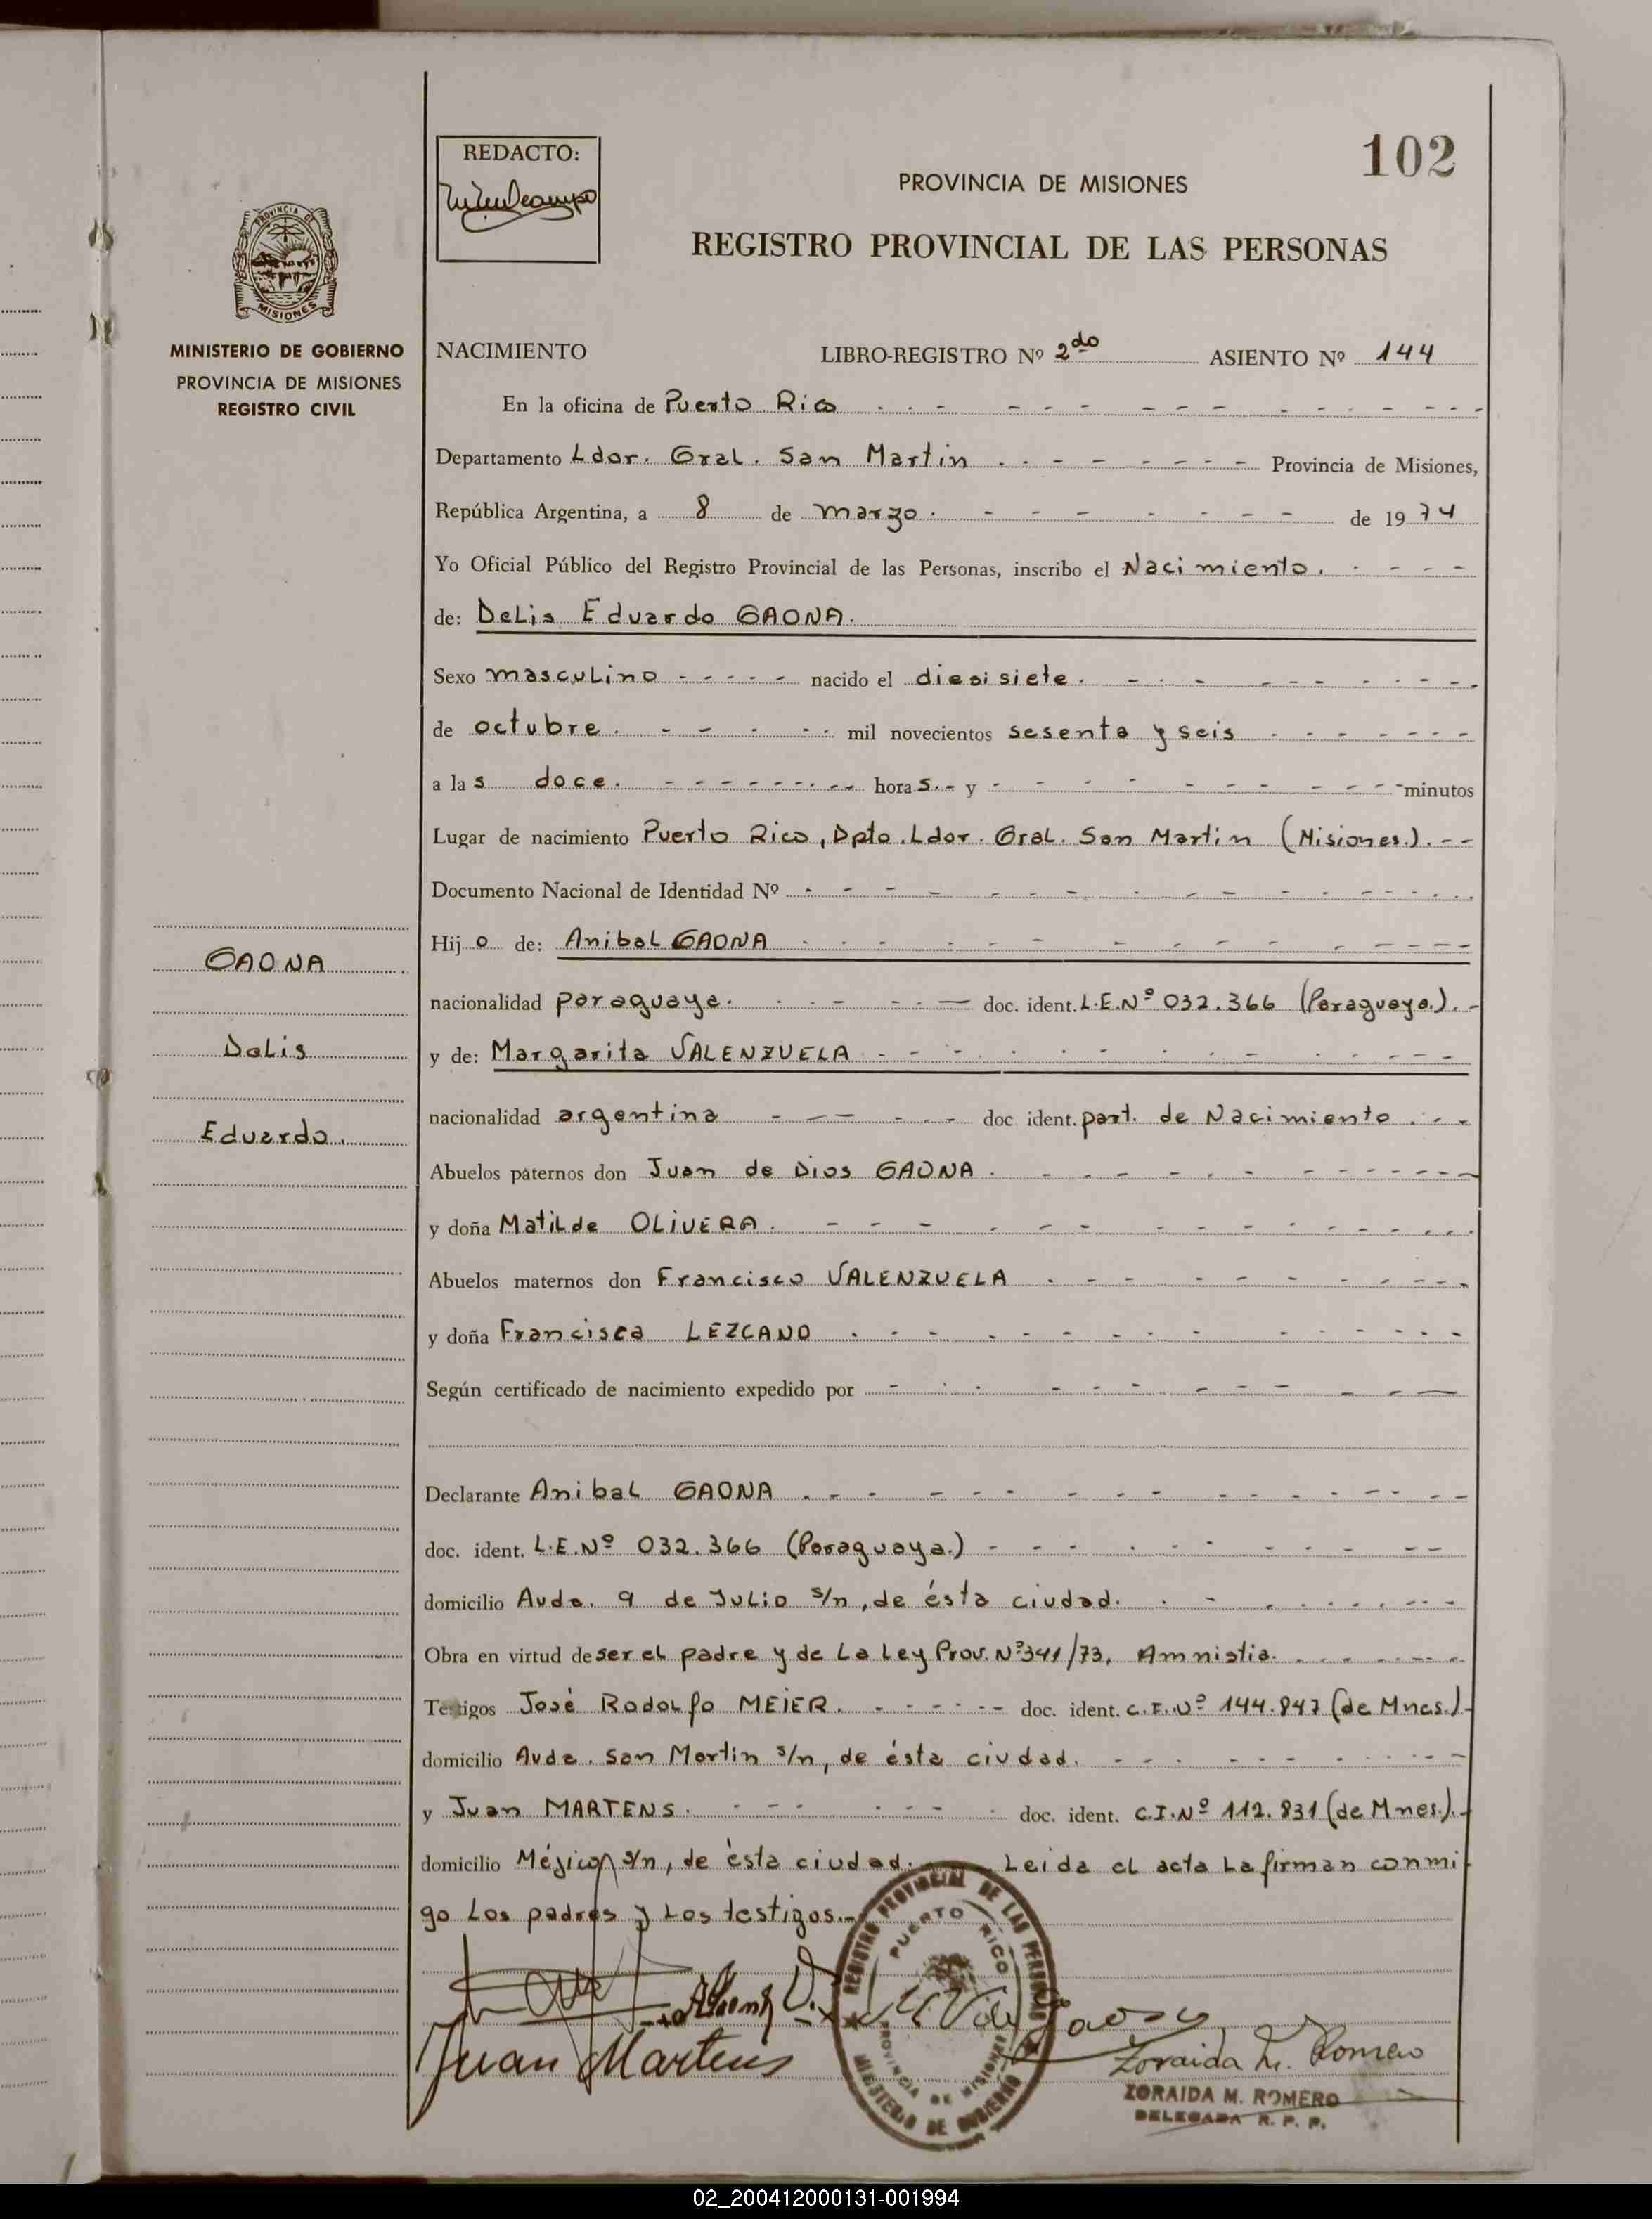 102
REDACTO:
PROVINCIA DE MISIONES
REGISTRO PROVINCIAL DE LAS PERSONAS
PROVINCIA DE
MISIONES
MINISTERIO DE GOBIERNO
PROVINCIA DE MISIONES
REGISTRO CIVIL
NACIMIENTO LIBRO-REGISTRO Nº 2do ASIENTO Nº 144
En la oficina de Puerto Rico
Departamento Ldor. Gral. San Martin Provincia de Misiones,
República Argentina, a 8 de marzo. de 1974
Yo Oficial Público del Registro Provincial de las Personas, inscribo el Nacimiento.
de: Delis Eduardo GAONA.
Sexo masculino nacido el diesisiete.
de octubre. mil novecientos sesenta y seis
a las doce. horas. y minutos
Lugar de nacimiento Puerto Rico, Dpto. Ldor. Gral. San Martin (Misiones.).
Documento Nacional de Identidad Nº
Hijo de: Anibal GAONA
GAONA
nacionalidad paraguaya. doc. ident. L.E.Nº 032.366 (Paraguaya.).
Dalis
y de: Margarita VALENZUELA
nacionalidad argentina doc ident. part. de Nacimiento.
Eduardo.
Abuelos paternos don Juan de Dios GAONA.
y doña Matilde OLIVERA.
Abuelos maternos don Francisco VALENZUELA
y doña Francisca LEZCANO
Según certificado de nacimiento expedido por
Declarante Anibal GAONA
doc. ident. L.E.Nº 032.366 (Paraguaya.)
domicilio Avda. 9 de Julio s/n, de ésta ciudad.
Obra en virtud de ser el padre y de La Ley Prov. Nº341/73, Amnistia.
Testigos José Rodolfo MEIER. doc. ident. C.I.Nº 144.847 (de Mnes.).
domicilio Avda. San Martin s/n, de ésta ciudad.
y Juan MARTENS. doc. ident. C.I.Nº 112.831 (de Mnes.).
domicilio Méjico s/n, de ésta ciudad. Leida el acta La firman conmi
go Los padres y Los testigos.-
REGISTRO PROVINCIAL DE LAS PERSONAS
PUERTO RICO
PROVINCIA DE MISIONES
MINISTERIO DE GOBIERNO
Juan Martens
Zoraida M. Romero
ZORAIDA M. ROMERO
DELEGADA R. P. P.
02_200412000131-001994